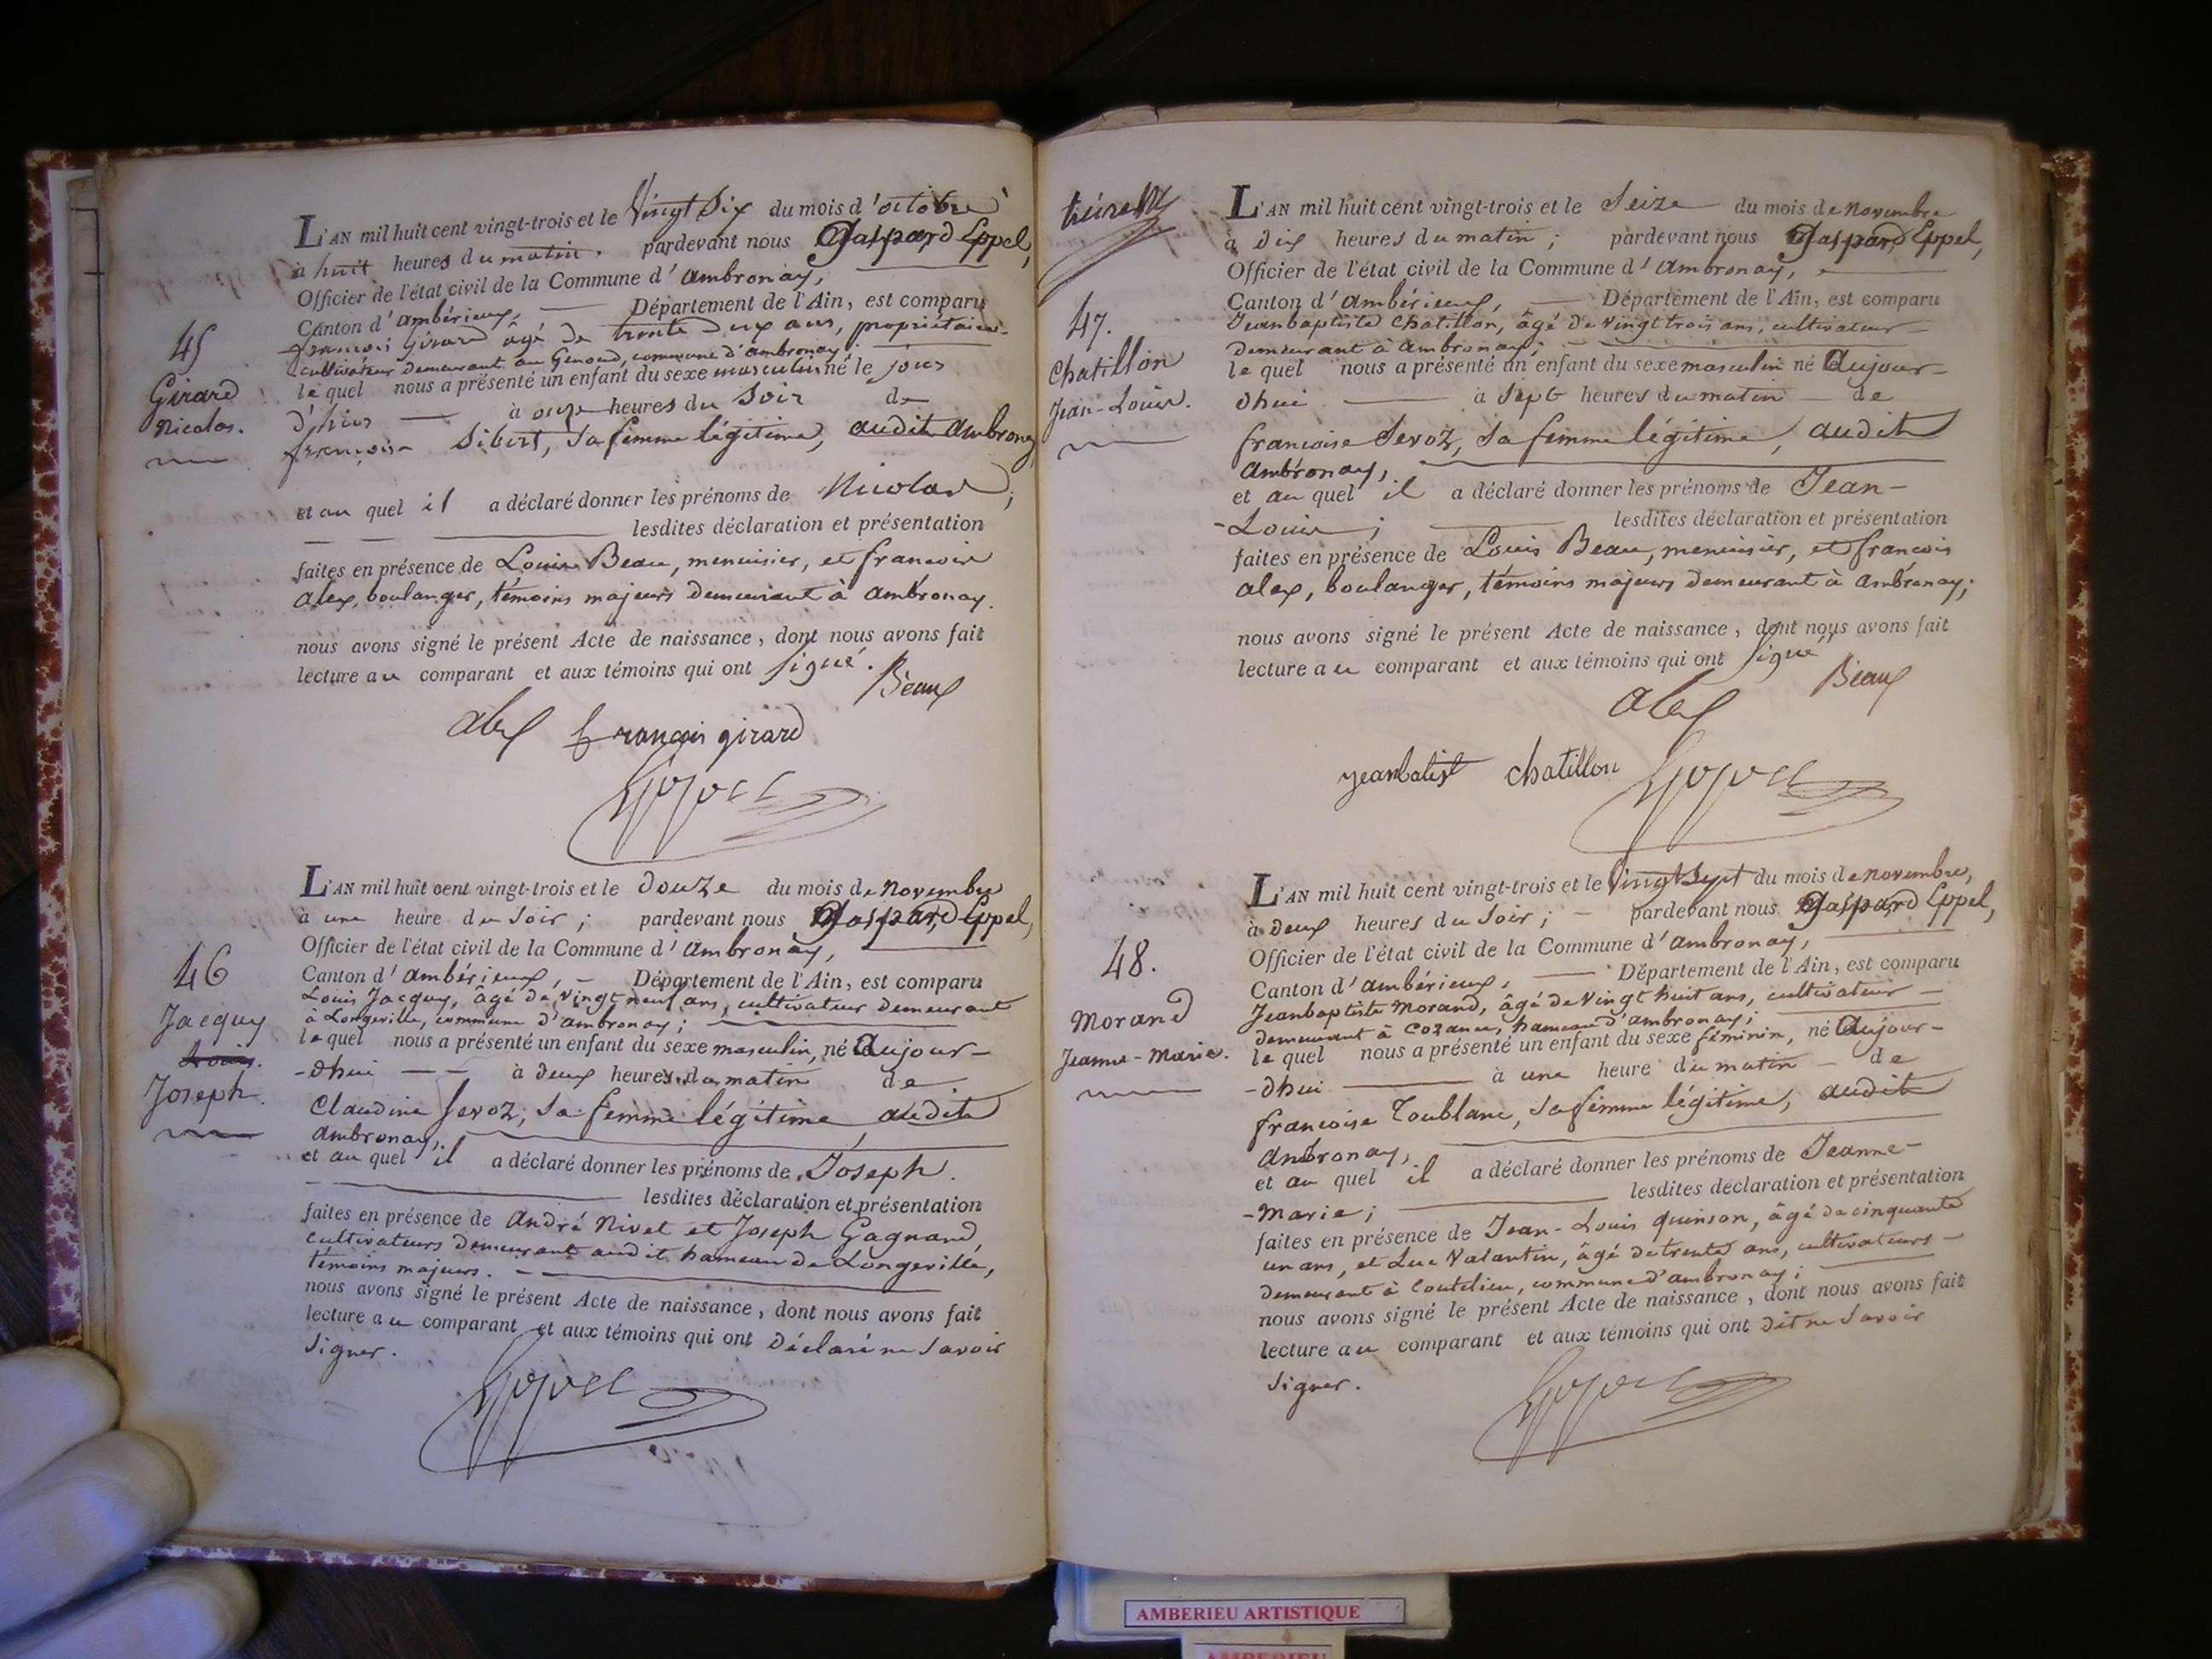 45
Girard
Nicolas.
L'AN mil huit cent vingt-trois et le Vingt Six du mois d'octobre
à huit heures du matin, pardevant nous Gaspard Eppel,
Officier de l'état civil de la Commune d'ambronay,
Canton d'ambérieux, Département de l'Ain, est comparu
françois Girard âgé de trente deux ans, propriétaire-
cultivateur demeurant au Genoud, commune d'ambronay;
lequel nous a présenté un enfant du sexe masculin né le jour
d'hier à onze heures du Soir de
françoise Sibert, Sa femme légitime, audit ambronay
et au quel il a déclaré donner les prénoms de Nicolas;
lesdites déclaration et présentation
faites en présence de Louis Beau, menuisier, et françois
alex, boulanger, témoins majeurs demeurant à ambronay.
nous avons signé le présent Acte de naissance, dont nous avons fait
lecture au comparant et aux témoins qui ont Signé.
Beaux
alex françois girard
46
Jacquy
Louis.
Joseph.
L'AN mil huit cent vingt-trois et le douze du mois de novembre
à une heure du Soir; pardevant nous Gaspard Eppel,
Officier de l'état civil de la Commune d'ambronay,
Canton d'ambérieux, - Département de l'Ain, est comparu
Louis Jacquy, âgé de vingt neuf ans, cultivateur demeurant
à Longeville, commune d'ambronay;
lequel nous a présenté un enfant du sexe masculin, né aujour-
-dhui à deux heures du matin de
Claudine Servoz, Sa femme légitime, audit
ambronay,
et au quel il a déclaré donner les prénoms de Joseph.
lesdites déclaration et présentation
faites en présence de André Nivet et Joseph Gagnard,
cultivateurs demeurant audit hameau de Longeville,
témoins majeurs.
nous avons signé le présent Acte de naissance, dont nous avons fait
lecture au comparant et aux témoins qui ont déclaré ne Savoir
Signer.
47.
Chatillon
Jean-Louis.
L'AN mil huit cent vingt-trois et le Seize du mois de novembre
à dix heures du matin; pardevant nous Gaspard Eppel,
Officier de l'état civil de la Commune d'ambronay,
Canton d'ambérieux, Département de l'Ain, est comparu
Jeanbaptiste Chatillon, âgé de vingt trois ans, cultivateur
demeurant à ambronay;
lequel nous a présenté un enfant du sexe masculin né aujour-
dhui à Sept heures du matin de
françoise Servoz, Sa femme légitime, audit
ambronay,
et au quel il a déclaré donner les prénoms de Jean-
-Louis; lesdites déclaration et présentation
faites en présence de Louis Beau, menuisier, et françois
alex, boulanger, témoins majeurs demeurant à ambronay;
nous avons signé le présent Acte de naissance, dont nous avons fait
lecture au comparant et aux témoins qui ont Signé
Beaux
alex
jeanbatist chatillon
48.
Morand
Jeanne-Marie.
L'AN mil huit cent vingt-trois et le Vingt Sept du mois de novembre,
à deux heures du Soir; - pardevant nous Gaspard Eppel,
Officier de l'état civil de la Commune d'ambronay,
Canton d'ambérieux, Département de l'Ain, est comparu
Jeanbaptiste Morand, âgé de Vingt huit ans, cultivateur
demeurant à Cozance, hameau d'ambronay;
lequel nous a présenté un enfant du sexe féminin, né aujour-
-dhui à une heure du matin de
françoise Toublanc, Sa femme légitime, audit
ambronay,
et au quel il a déclaré donner les prénoms de Jeanne-
-Marie; lesdites déclaration et présentation
faites en présence de Jean-Louis quinson, âgé de cinquante
un ans, et Luc Valantin, âgé de trente ans, cultivateurs
demeurant à Coutelieu, commune d'ambronay;
nous avons signé le présent Acte de naissance, dont nous avons fait
lecture au comparant et aux témoins qui ont dit ne Savoir
Signer.
AMBERIEU ARTISTIQUE
AMBERIEU